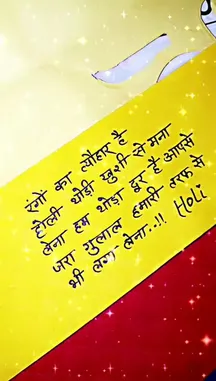 रंगो का त्यौहार है
होली थोड़ी खुशी से मना
लेना हम थोड़ा दूर है आपसे
जरा गुलाल हमारी तरफ से
भी लगा लेना...!! Holi